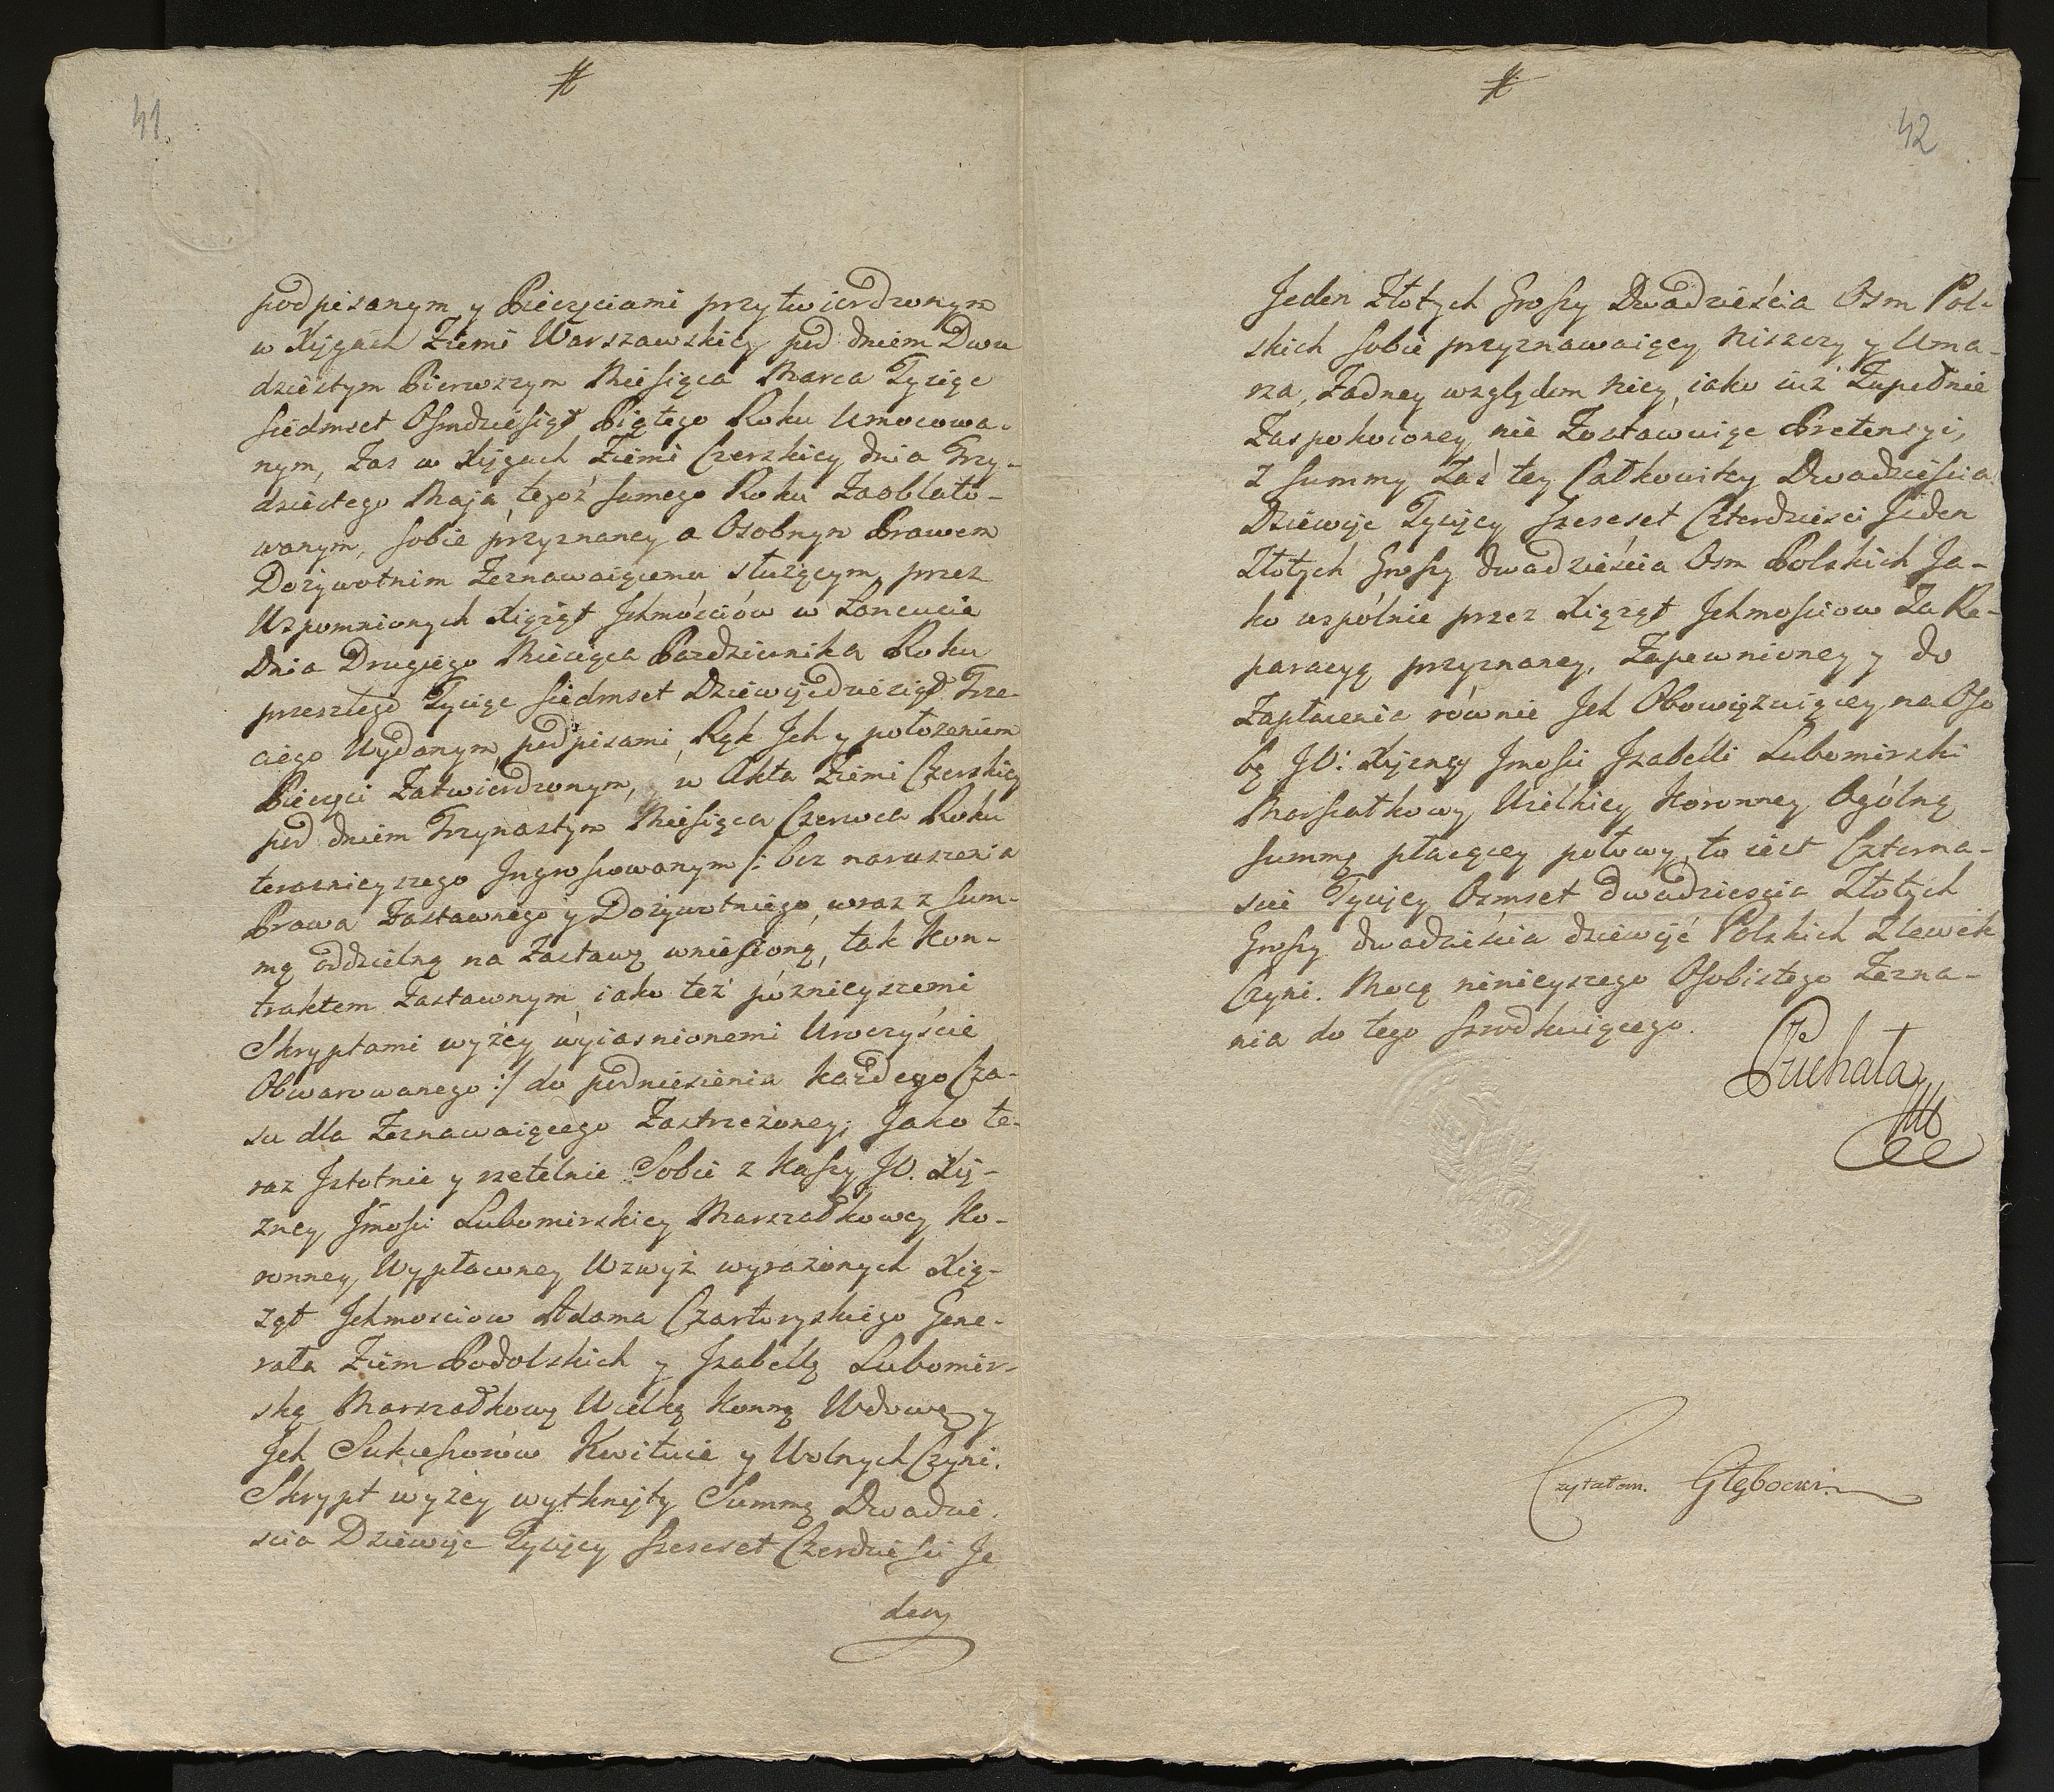 41.
podpisanym y Pieczęciami przytwierdzonym
w Xięgach Ziemi Warszawskiey pod dniem Dwu
dziestym Pierwszym Miesiąca Marca Tysiąc
siedmset Osmdziesiąt Piątego Roku Umocowa-
nym, Zas w Xięgach Ziemi Czerskiey dnia Trzy-
dziestego Maja tegoż samego Roku Zaoblato-
wanym, sobie przyznaney a Osobnym Prawem
Dożywotnim Zeznawaiącemu służącym, przez
Wspomnionych Xiążąt Jchmościów w Łancucie
Dnia Drugiego Miesiąca Pazdziernika Roku
przeszłego Tysiąc siedmset Dziewięćdziesiąt Trze-
ciego Wydanym, podpisami Rąk Jch y położeniem
Pieczęci Zatwierdzonym, w Akta Ziemi Czerskiey
pod dniem Trzynastym Miesiąca Czerwca Roku
teraznieyszego Jngrossowanym /: bez naruszenia
Prawa Zastawnego y Dożywotniego, wraz z Sum-
mą oddzielną na Zastawę wniesioną, tak Kon-
traktem Zastawnym iako też poznieyszemi
Skryptami wyżey wyiasnionemi Uroczyście
Obwarowanego :/ do podniesienia każdego Cza-
su dla Zeznawaiącego Zastrzeżoney; Jako te-
raz Jstotnie y rzetelnie Sobie z Kassy JO. Xię-
żney Jmości Lubomirskiey Marszałkowey Ko-
ronney, Wypłaconey Wzwyż wyrażonych Xią-
żąt Jchmosciow Adama Czartoryskiego Gene-
rała Ziem Podolskich y Jzabellę Lubomir-
ską Marszałkową Wielką Konną Wdowę y
Jch Sukcessorów Kwituie y Wolnych Czyni.
Skrypt wyżey wytknięty Summę Dwadzie-
scia Dziewięć Tysięcy szescset Czterdziesci Je
den
42
Jeden Złotych Groszy Dwadzieścia Osm Pol-
skich sobie przyznawaiący Niszczy y Uma-
rza, Żadney względem Niey, iako iuż Zupełnie
Zaspokoioney nie Zostawuiąc Pretensyi,
z Summy Zaś tey Całkowitey Dwadziescia
Dziewięć Tysięcy szescset Czterdziesci Jeden
Złotych Groszy dwadzieścia Osm Polskich Ja-
ko wspólnie przez Xiążąt Jchmosciow Za Re-
paracyą przyznaney, Zapewnioney y do
Zapłacenia równie Jch Obowiązuiącey, na Oso
bę JO: Xiężney Jmosci Jzabelli Lubomirski
Marszałkowy Wielkiey Koronney Ogólną
Summę płacącey połowy, to iest Czterna-
scie Tysięcy Osmset dwadziescia Złotych
Groszy dwadzieścia dziewięć Polskich Zlewek
Czyni. Mocą ninieyszego Osobistego Zezna-
nia do tego srzodkuiącego.
Puchała
Czytałem. Głębocki